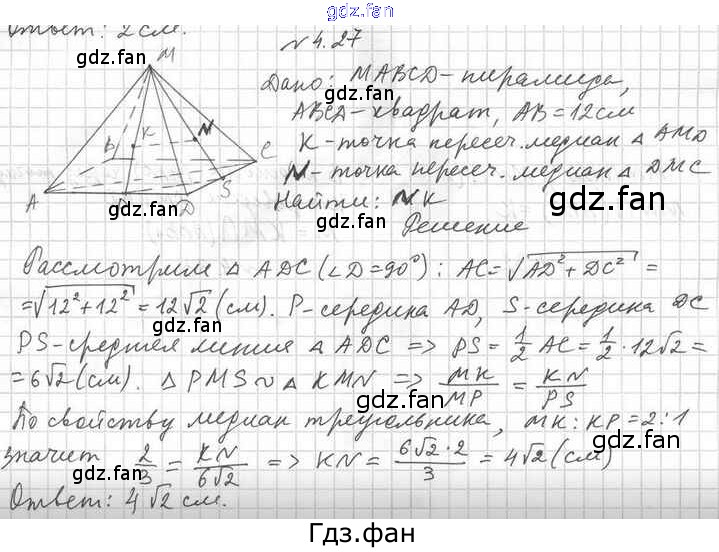 gdz.fan
Ответ: 2 см.
№ 4.27
gdz.fan
M
Дано: MABCD – пирамида,
gdz.fan
ABCD – квадрат, AB = 12 см
K – точка пересеч. медиан △ AMD
N – точка пересеч. медиан △ DMC
K N C
A D S
Найти: NK
gdz.fan
gdz.fan
Решение
Рассмотрим △ ADC (∠D = 90°): AC = √(AD² + DC²) =
= √(12² + 12²) = 12√2 (см). P – середина AD, S – середина DC
gdz.fan
gdz.fan
PS – средняя линия △ ADC => PS = 1/2 AC = 1/2 · 12√2 =
= 6√2 (см). △ PMS ∼ △ KMN => MK/MP = KN/PS
gdz.fan
gdz.fan
По свойству медиан треугольника, MK : KP = 2 : 1
gdz.fan
Значит 2/3 = KN/6√2 => KN = 6√2 · 2/3 = 4√2 (см)
gdz.fan
Ответ: 4√2 см.
gdz.fan
Гдз.фан